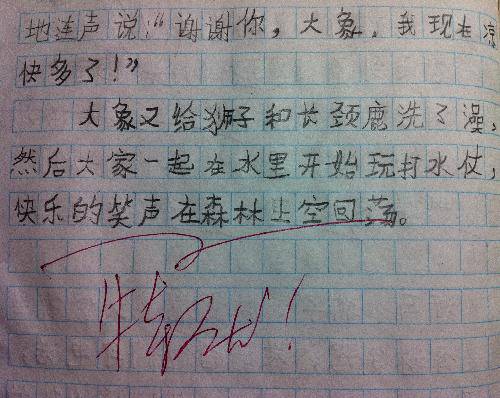 地连声说：“谢谢你，大象，我现在凉
快多了！”
大象又给狮子和长颈鹿洗了澡，
然后大家一起在水里开始玩打水仗，
快乐的笑声在森林上空回荡。